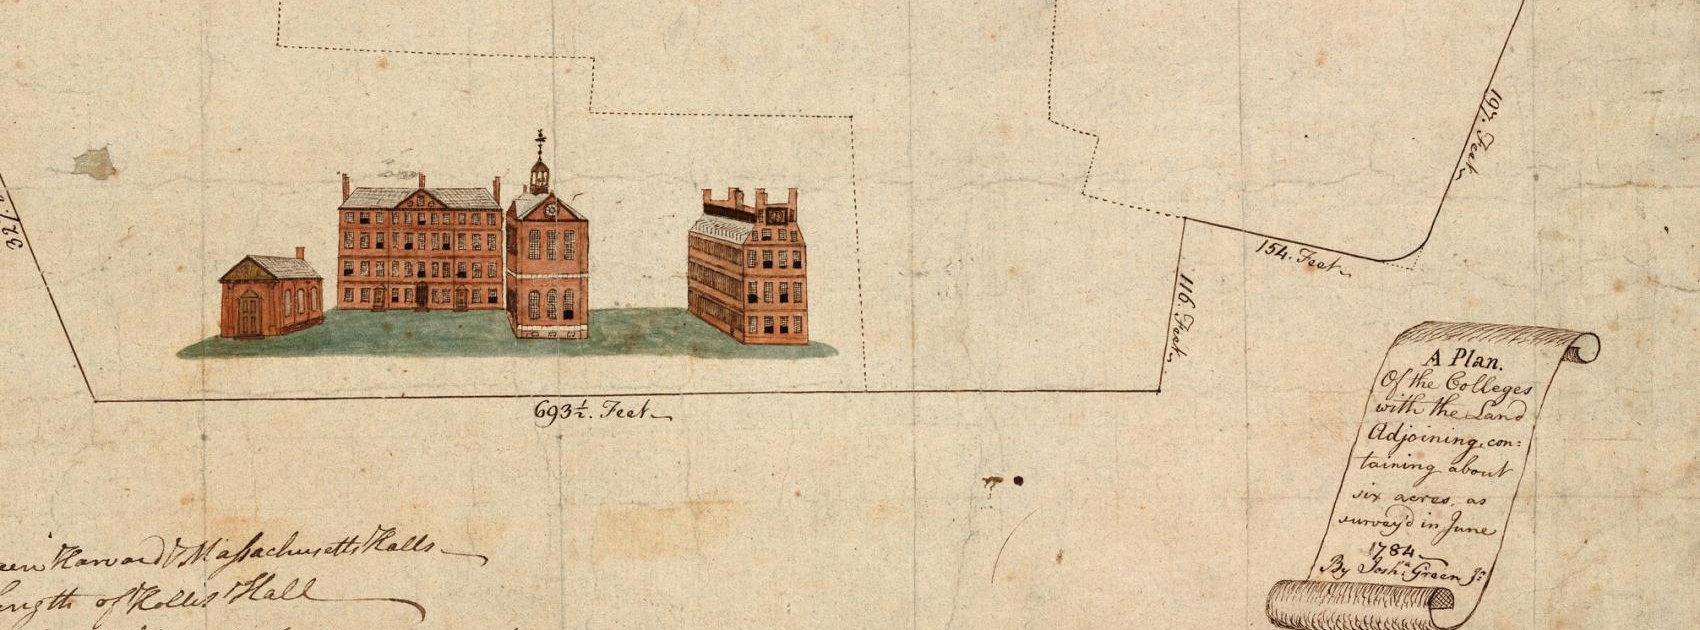 197. Feet
327.
154. Feet
116. Feet
693½. Feet
A Plan.
Of the Colleges
with the Land
Adjoining, con:
taining about
six acres, as
survey'd in June
1784
By Josha. Green Jr.
Harvard & Massachusetts Halls
length of Hollis Hall